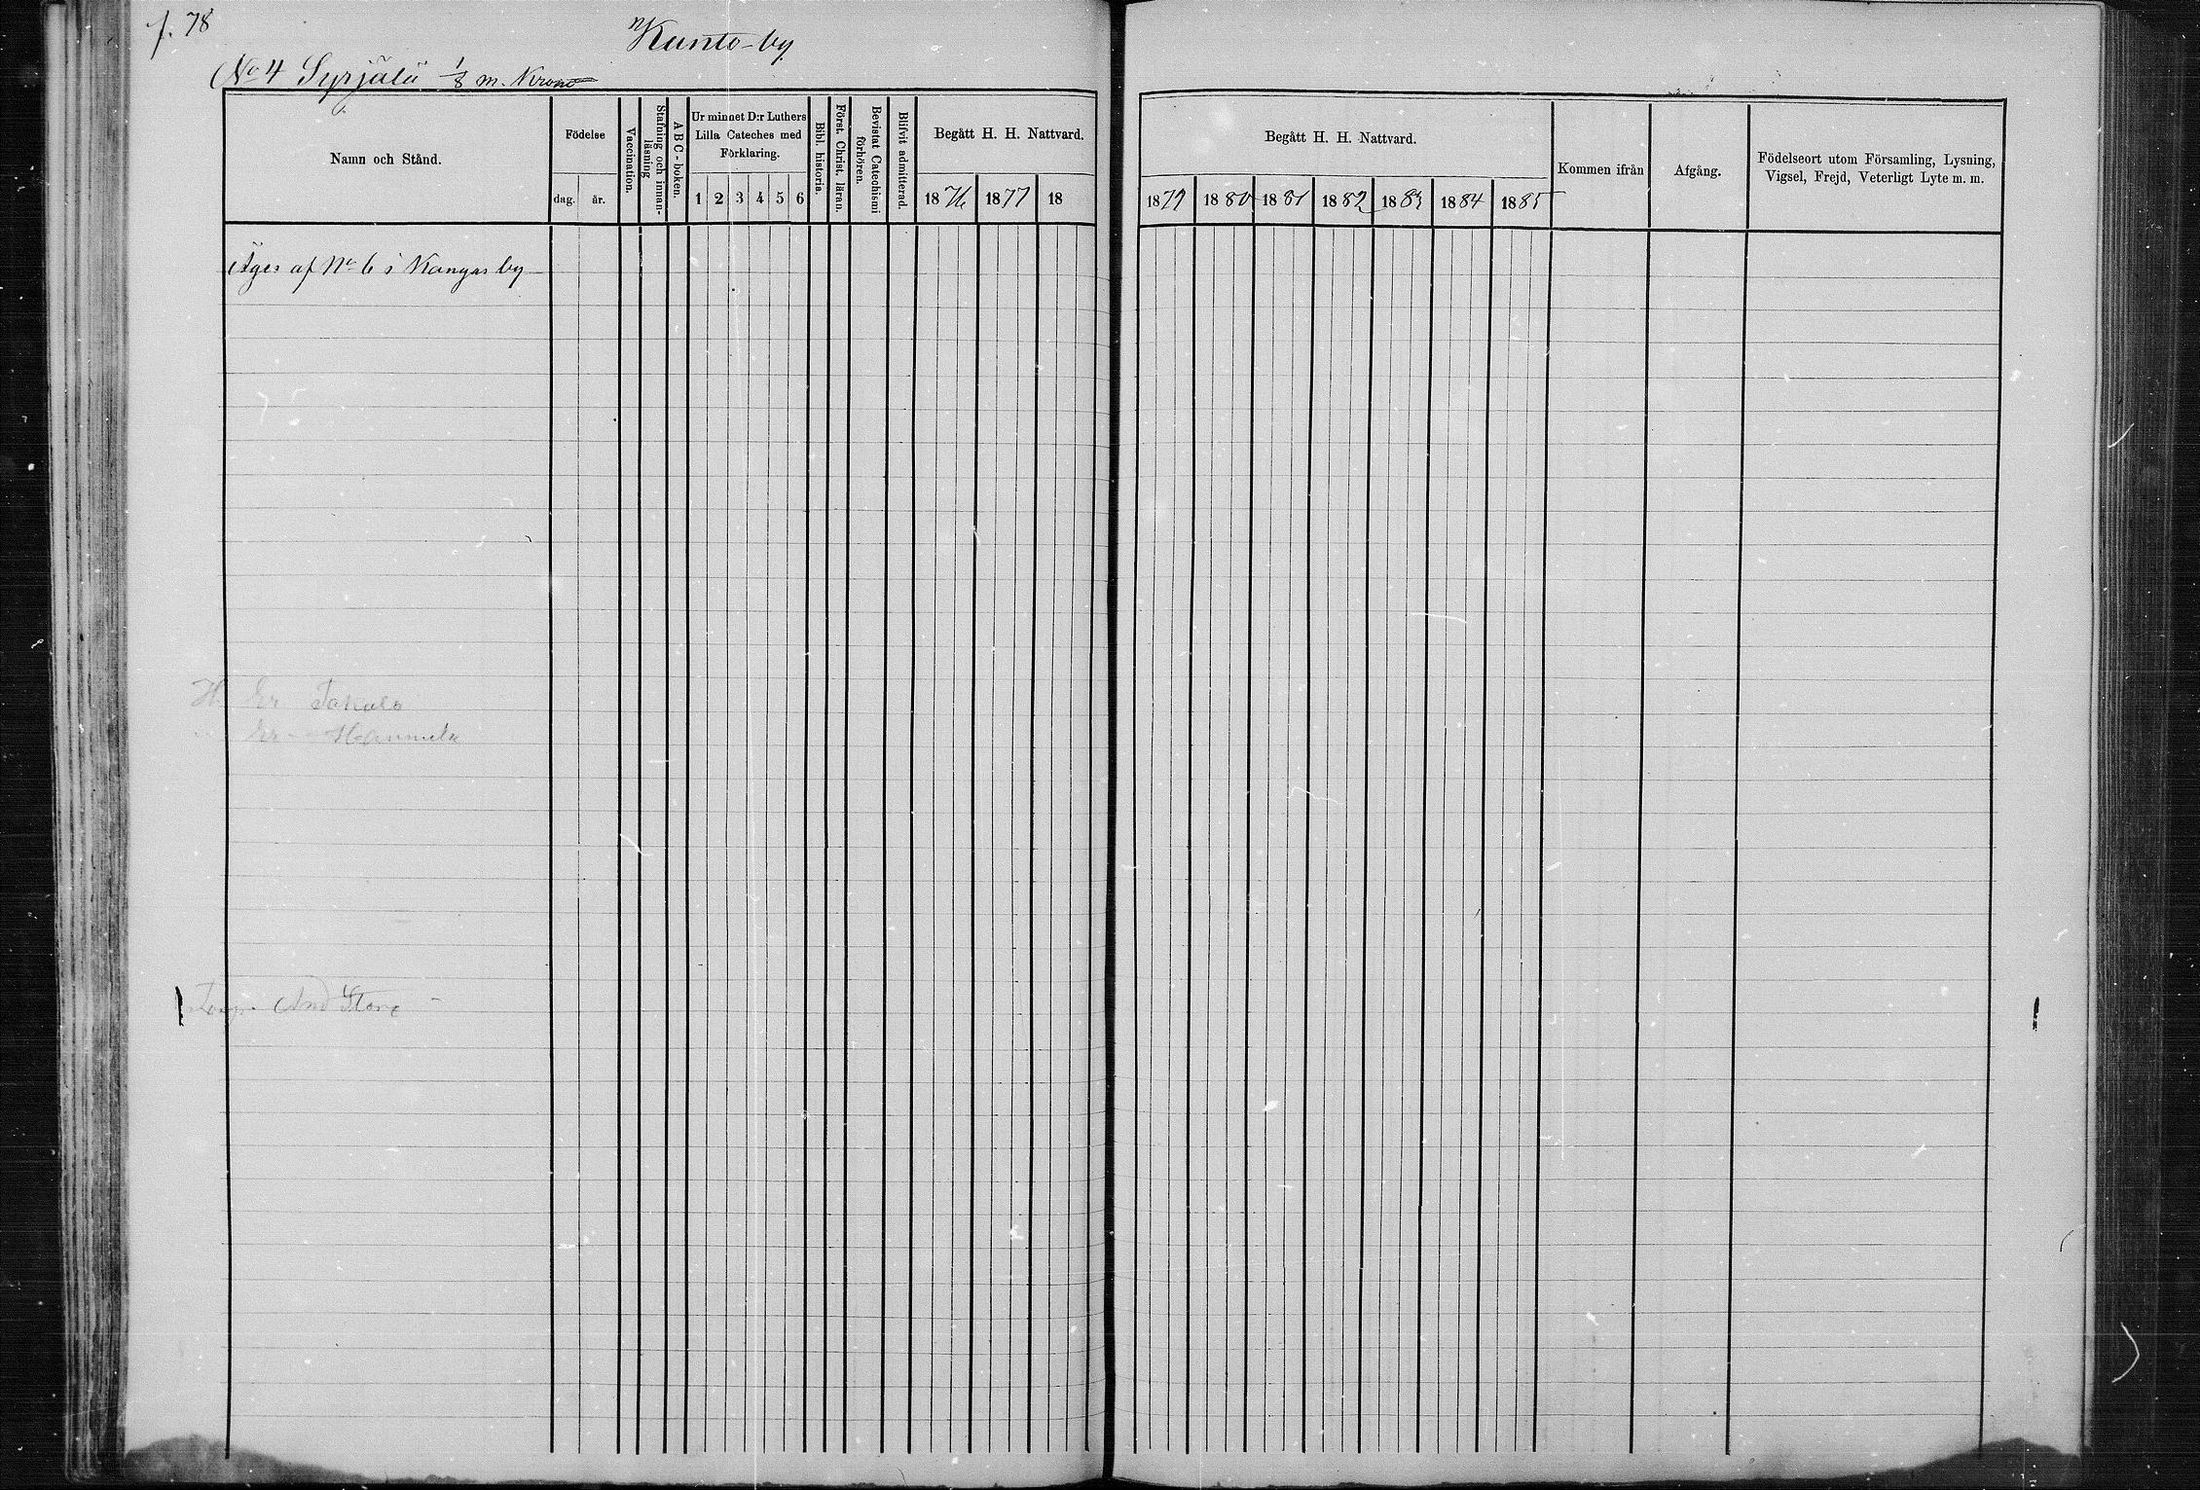 p. 78
Kunto-by.
No 4 Syrjälä 1/8 m. Krono
Namn och Stånd.
Födelse
dag.
år.
Vaccination.
Stafning och innan-
läsning
ABC-boken.
Ur minnet D:r Luthers
Lilla Cateches med
Förklaring.
1 2 3 4 5 6
Bibl. historia.
Först. Christ. läran.
Bevistat Catechismi
förhören.
Blifvit admitterad.
Begått H. H. Nattvard.
1876 1877 18
Äges af No 6 i Kangas by
Takala
Hannula
And
Begått H. H. Nattvard.
1879 1880 1881 1882 1883 1884 1885
Kommen ifrån
Afgång.
Födelseort utom Församling, Lysning,
Vigsel, Frejd, Veterligt Lyte m. m.